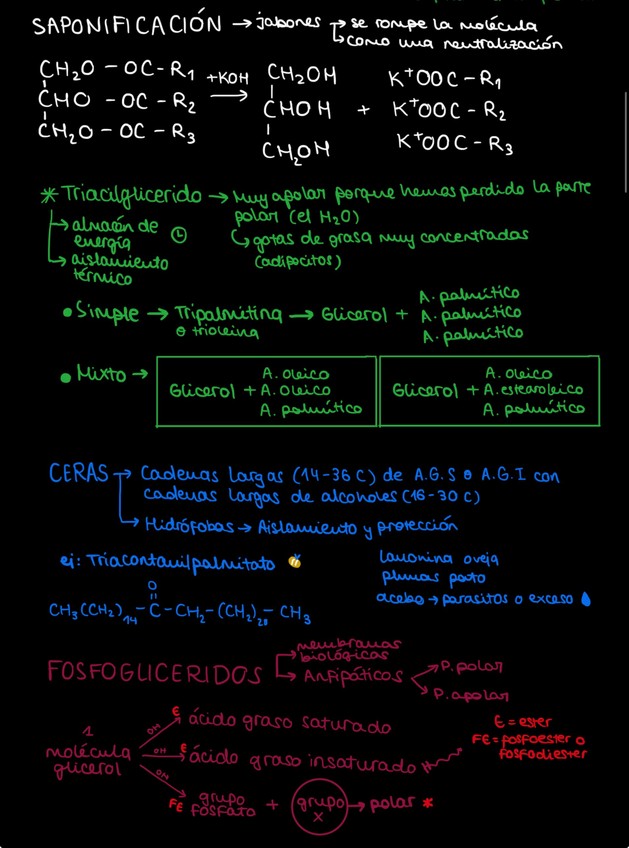 SAPONIFICACIÓN → jabones → se rompe la molécula
↳ como una neutralización
CH₂O – OC – R₁ +KOH → CH₂OH K⁺OOC – R₁
CHO – OC – R₂ CHOH + K⁺OOC – R₂
CH₂O – OC – R₃ CH₂OH K⁺OOC – R₃
* Triacilglicerido → Muy apolar porque hemos perdido la parte
polar (el H₂O)
↳ gotas de grasa muy concentradas
(adipocitos)
→ almacén de
energía
→ aislamiento
térmico
• Simple → Tripalmitina → Glicerol + A. palmítico
o trioleina A. palmítico
A. palmítico
• Mixto →
A. oleico
Glicerol + A. oleico
A. palmítico
A. oleico
Glicerol + A. estearoleico
A. palmítico
CERAS → Cadenas largas (14-36 C) de A.G.S o A.G.I con
cadenas largas de alcoholes (16-30 C)
↳ Hidrófobas → Aislamiento y protección
ej: Triacontanilpalmitato
O
CH₃(CH₂)₁₄ – C – CH₂ – (CH₂)₂₈ – CH₃
lanonina oveja
plumas pato
acebo → parasitos o exceso
FOSFOGLICERIDOS → membranas
biológicas
↳ Anfipáticos → P. polar
→ P. apolar
1
molécula
glicerol
OH E ácido graso saturado
OH E ácido graso insaturado
OH FE grupo
fosfato + grupo
x → polar *
E = ester
FE = fosfoester o
fosfodiester